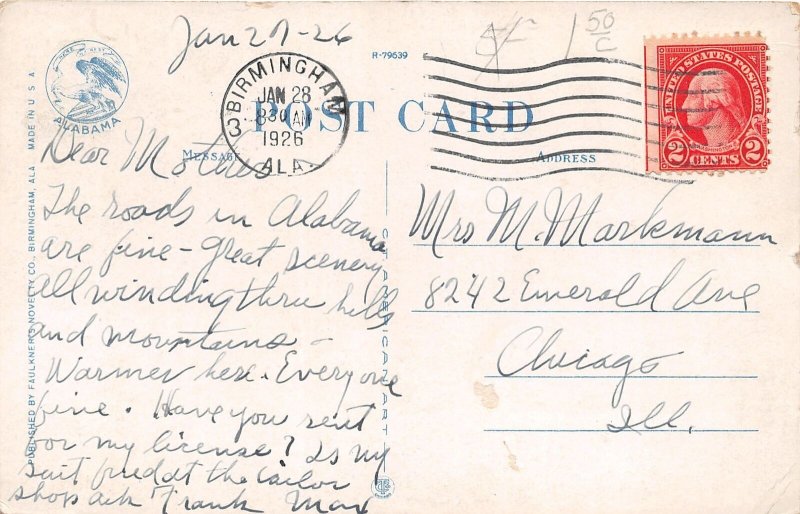 Jan 27-26
R-79639
5/-
1 50/c
ALABAMA
BIRMINGHAM
JAN 28
8 30 AM
1926
3
ALA.
POST CARD
MESSAGE
ADDRESS
UNITED STATES POSTAGE
WASHINGTON
2 CENTS 2
Dear Mother
The roads in Alabama
are fine - great scenery
all winding thru hills
and mountains -
Warmer here. Everyone
fine. Have you sent
for my license? Is my
suit at the tailor
shop ask Frank Max
Mrs M. Markmann
8242 Emerald Ave
Chicago
Ill.
PUBLISHED BY FAULKNER'S NOVELTY CO., BIRMINGHAM, ALA. MADE IN U S A
C. T. AMERICAN ART